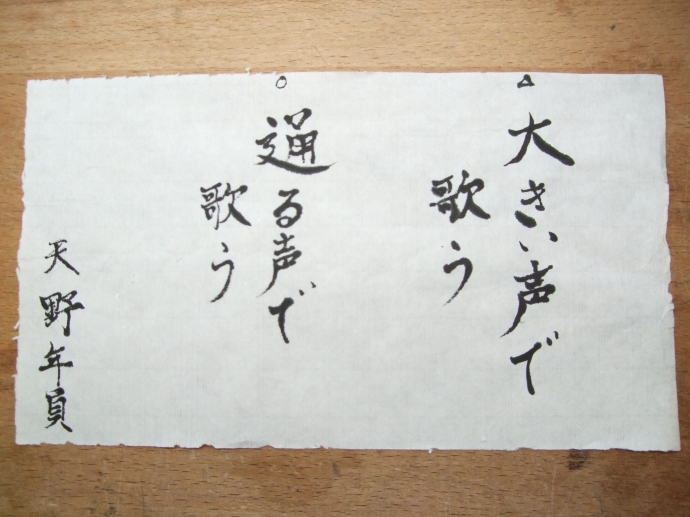 △大きい声で
歌う
○通る声で
歌う
天野年員